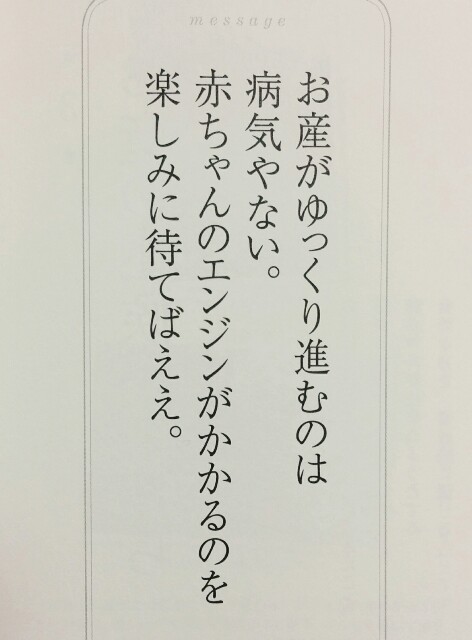 message
お産がゆっくり進むのは
病気やない。
赤ちゃんのエンジンがかかるのを
楽しみに待てばええ。